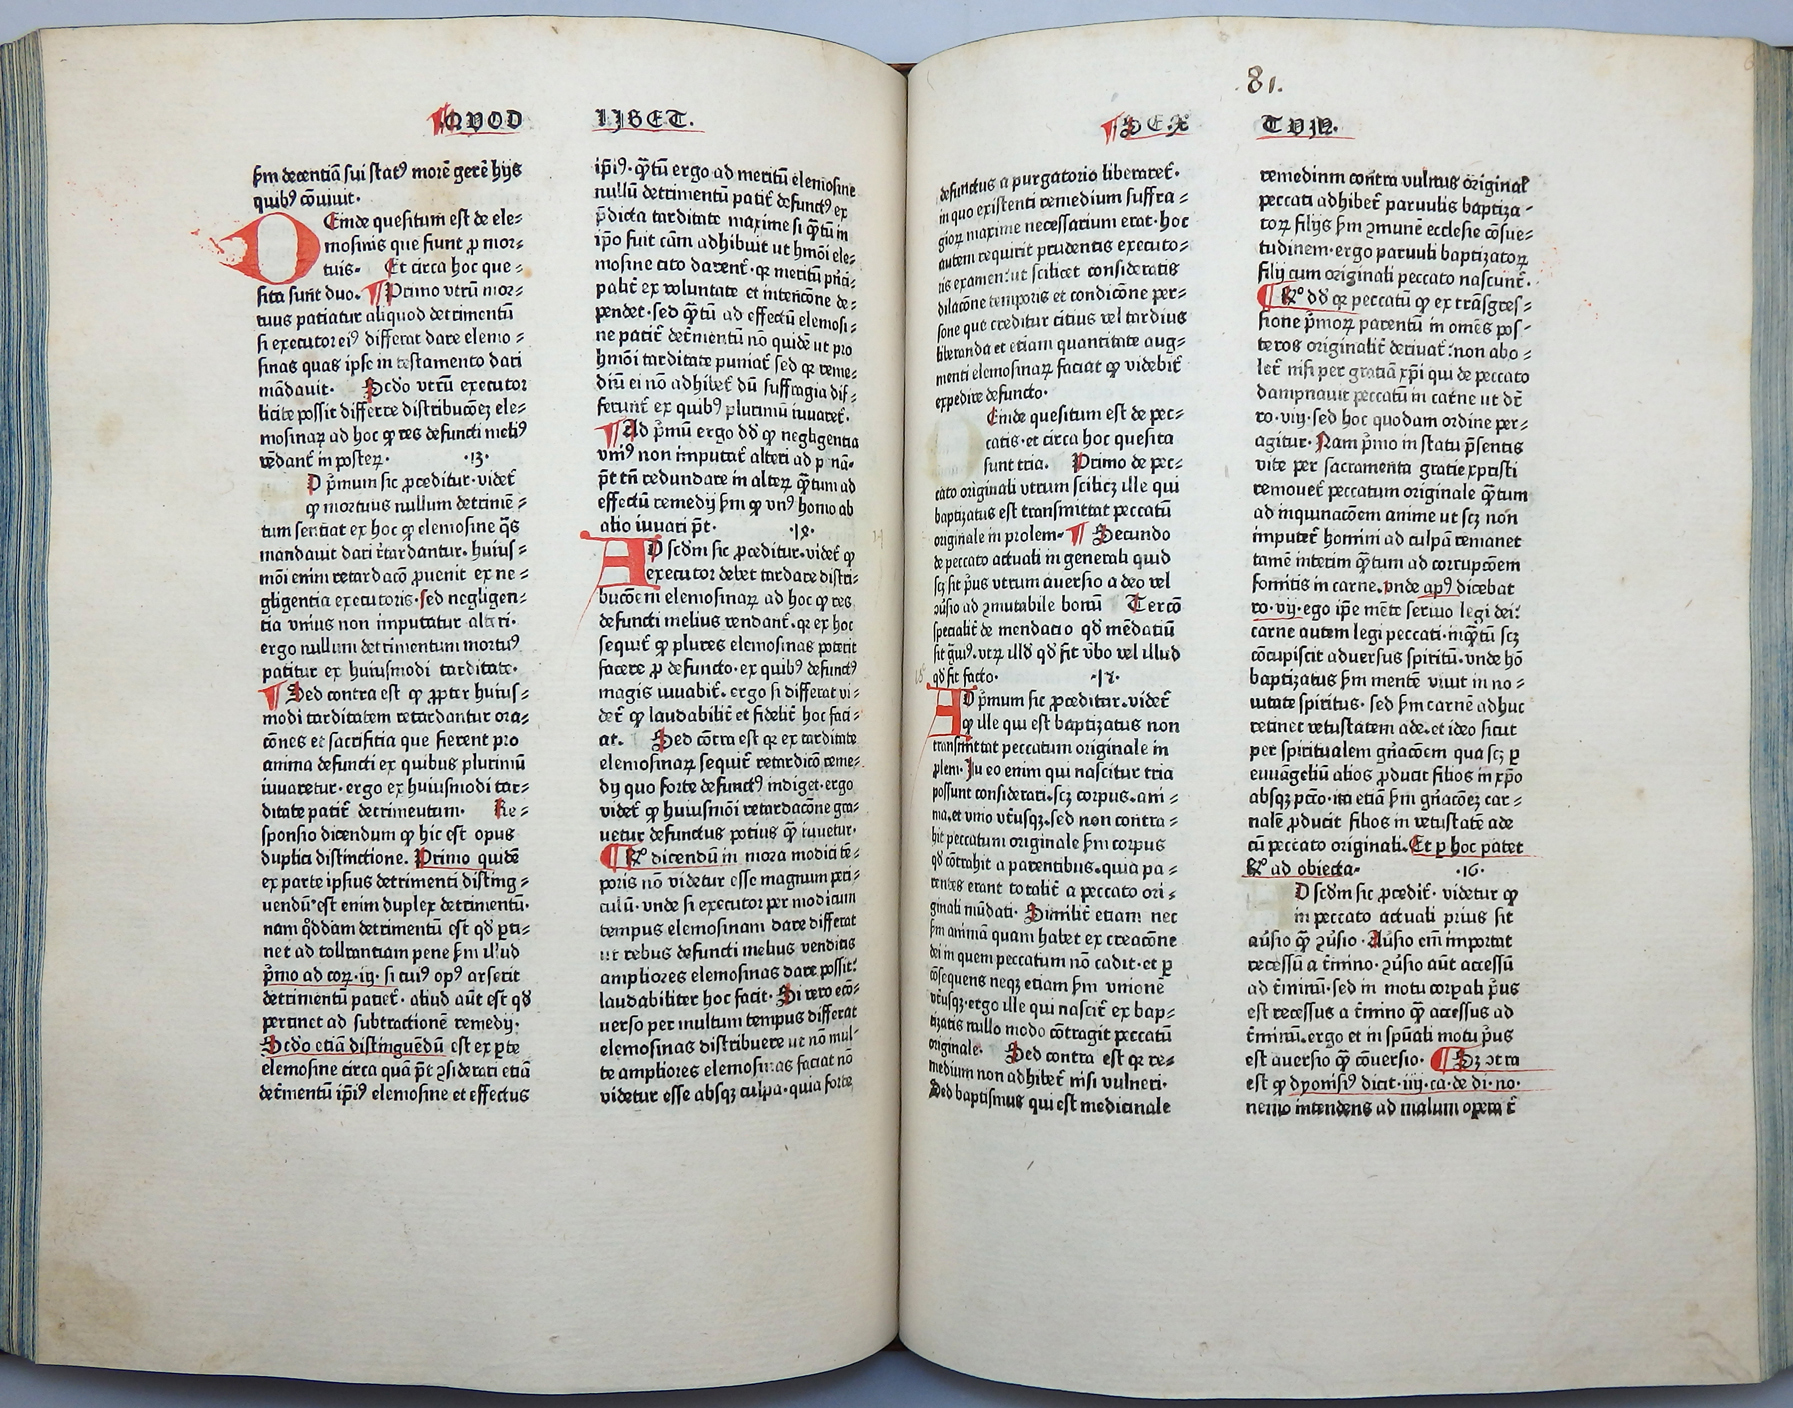 QVOD LIBET.
ẜm decentiā sui statꝰ morē gerē hijs
quibꝰ ꝯuiuit.
DEinde quesitum est de ele⸗
mosinis que fiunt ꝓ mor⸗
tuis. Et circa hoc que⸗
sita sunt duo. ¶ Primo vtrū mor⸗
tuus patiatur aliquod detrimentū
si executor eiꝰ differat dare elemo⸗
sinas quas ipse in testamento dari
mādauit. Scđo vtrū executor
licite possit differre distribucōeʒ ele⸗
mosinaꝝ ad hoc ꝙ res defuncti meliꝰ
vēdant̄ in posteꝝ. .13.
D p̄mum sic ꝓceditur. videt̄
ꝙ mortuus nullum detrimē⸗
tum sentiat ex hoc ꝙ elemosine q̄s
mandauit dari r̄tardantur. huius⸗
mōi enim retardacō ꝓuenit ex ne⸗
gligentia executoris. sed negligen⸗
tia vnius non imputatur alteri.
ergo nullum detrimentum mortuꝰ
patitur ex huiusmodi tarditate.
¶ Sed contra est ꝙ ꝓpter huius⸗
modi tarditatem retardantur ora⸗
cōnes et sacrifitia que fierent pro
anima defuncti ex quibus plurimū
iuuaretur. ergo ex huiusmodi tar⸗
ditate patit̄ detrimentum. Re⸗
sponsio dicendum ꝙ hic est opus
duplici distinctione. Primo quidē
ex parte ipsius detrimenti disting⸗
vendū. est enim duplex detrimentū.
nam q̊ddam detrimentū est qđ ꝑti⸗
net ad tollrantiam pene ẜm illud
p̄mo ad coꝝ. iij. si cuiꝰ opꝰ arserit
detrimentū patiet̄. aliud aūt est qđ
pertinet ad subtractionē remedij.
Scđo etiā distinguēdū est ex ꝑte
elemosine circa quā p̄t ꝯsiderari etiā
det̄mentū ip̄iꝰ elemosine et effectus
ip̄iꝰ. q̄ꝫtū ergo ad meritū elemosine
nullū detrimentū patit̄ defunctꝰ ex
p̄dicta tarditate maxime si q̄ꝫtū in
ip̄o fuit cām adhibuit ut hmōi ele⸗
mosine cito darent̄. qꝛ meritū p̄nci⸗
palit̄ ex voluntate et intencōne de⸗
pendet. sed q̄ꝫtū ad effectū elemosi⸗
ne patit̄ det̄mentū nō quidē ut pro
hmōi tarditate puniat̄ sed qꝛ reme⸗
diū ei nō adhibet̄ dū suffragia dif⸗
ferunt̄ ex quibꝰ plurimū iuuaret̄.
¶ Ad p̄mū ergo dđ ꝙ negligentia
vniꝰ non imputat̄ alteri ad p nā.
p̄t tn̄ redundare in alteꝝ q̄ꝫtum ad
effectū remedij ẜm ꝙ vnꝰ homo ab
alio iuuari p̄t. .18.
AD scđm sic ꝓceditur. videt̄ ꝙ
executor debet tardare distri⸗
bucōem elemosinaꝝ ad hoc ꝙ res
defuncti melius vendant̄. qꝛ ex hoc
sequit̄ ꝙ plures elemosinas poterit
facere ꝓ defuncto. ex quibꝰ defunctꝰ
magis iuuabit̄. ergo si differat vi⸗
det̄ ꝙ laudabilit̄ et fidelit̄ hoc faci⸗
at. Sed cōtra est qꝛ ex tarditate
elemosinaꝝ sequit̄ retardicō reme⸗
dij quo forte defunctꝰ indiget. ergo
videt̄ ꝙ huiusmōi retardacōne gra⸗
uetur defunctus potius q̄ꝫ iuuetur.
¶ R̊ dicendū in mora modici tē⸗
poris nō videtur esse magnum peri⸗
culū. vnde si executor per modicum
tempus elemosinam dare differat
ut rebus defuncti melius venditis
ampliores elemosinas dare possit:
laudabiliter hoc facit. Si vero ecō⸗
uerso per multum tempus differat
elemosinas distribuere ut nō mul⸗
te ampliores elemosinas faciat nō
videtur esse absqꝫ culpa. quia forte
81.
SEX TVM.
defunctus a purgatorio liberaret̄.
in quo existenti remedium suffra⸗
gioꝝ maxime necessarium erat. hoc
autem requirit prudentis executo⸗
ris examen: ut scilicet consideratis
dilacōne temporis et condicōne per⸗
sone que creditur citius vel tardius
liberanda et etiam quantitate aug⸗
menti elemosinaꝝ faciat ꝙ videbit̄
expedire defuncto.
Einde quesitum est de pec⸗
catis. et circa hoc quesita
sunt tria. Primo de pec⸗
cato originali vtrum scilicꝫ ille qui
baptizatus est transmittat peccatū
originale in prolem. ¶ Secundo
de peccato actuali in generali quid
scꝫ sit p̄us vtrum auersio a deo vel
ꝯūsio ad ꝯmutabile bonū Tercō
specialit̄ de mendacio qđ mēdatiū
sit g̃uiꝰ. vtꝝ illđ qđ fit v̄bo vel illud
qđ fit facto. .1ꝛ.
AD p̄mum sic ꝓceditur. videt̄
ꝙ ille qui est baptizatus non
transmittat peccatum originale in
ꝓlem. In eo enim qui nascitur tria
possunt considerari. scꝫ corpus. ani⸗
ma. et vnio vt̄usqꝫ. sed non contra⸗
hit peccatum originale ẜm corpus
qđ cōtrahit a parentibus. quia pa⸗
rentes erant totalit̄ a peccato ori⸗
ginali mūdati. Similit̄ etiam nec
ẜm animā quam habet ex creacōne
dei in quem peccatum nō cadit. et ꝑ
cōsequens neqꝫ etiam ẜm vnionē
vt̄usqꝫ. ergo ille qui nascit̄ ex bap⸗
tizatis nullo modo cōtragit peccatū
originale. Sed contra est qꝛ re⸗
medium non adhibet̄ nisi vulneri.
Sed baptismus qui est medicinale
remedium contra vulnus original̄
peccati adhibet̄ paruulis baptiza⸗
toꝝ filijs ẜm ꝯmunē ecclesie cōsue⸗
tudinem. ergo paruuli baptizatoꝝ
filij cum originali peccato nascunt̄.
¶ R̊ dđ qꝛ peccatū ꝙ ex trāsgres⸗
sione p̄moꝝ parentū in omēs pos⸗
teros originalit̄ deriuat̄: non abo⸗
let̄ nisi per gratiā xp̄i qui de peccato
dampnauit peccatū in carne ut dr̄
ro. viij. sed hoc quodam ordine per⸗
agitur. Nam p̄mo in statu p̄sentis
vite per sacramenta gratie xpristi
remouet̄ peccatum originale q̄ꝫtum
ad inquinacōem anime ut scꝫ non
imputet̄ homini ad culpā remanet
tamē interim q̄ꝫtum ad corrupcōem
fomitis in carne. vnde apꝰ dicebat
ro. vij. ego ip̄e mēte seruio legi dei:
carne autem legi peccati. inq̄ꝫtū scꝫ
cōcupiscit aduersus spiritū. vnde hō
baptizatus ẜm mentē viuit in no⸗
uitate spiritus. sed ẜm carnē adhuc
retinet vetustatem ade. et ideo sicut
per spiritualem gn̄acōem qua scꝫ ꝑ
euuāgeliū alios ꝓducit filios in xp̄o
absqꝫ pctō. ita etiā ẜm gn̄acōeʒ car⸗
nalē ꝓducit filios in vetustatē ade
cū peccato originali. Et ꝑ hoc patet
R̊ ad obiecta. .16.
D scđm sic ꝓcedit̄. videtur ꝙ
in peccato actuali prius sit
aūsio q̄ꝫ ꝯūsio. Aūsio em̄ importat
recessū a t̄mino. ꝯūsio aūt accessū
ad t̄minū. sed in motu corꝑali p̄us
est recessus a t̄mino q̄ꝫ accessus ad
t̄minū. ergo et in spūali motu p̄us
est auersio q̄ꝫ cōuersio. ¶ Sꝫ ꝯtra
est ꝙ dyonisiꝰ dicit. iiij. ca. de di. no.
nemo intendens ad malum operat̄